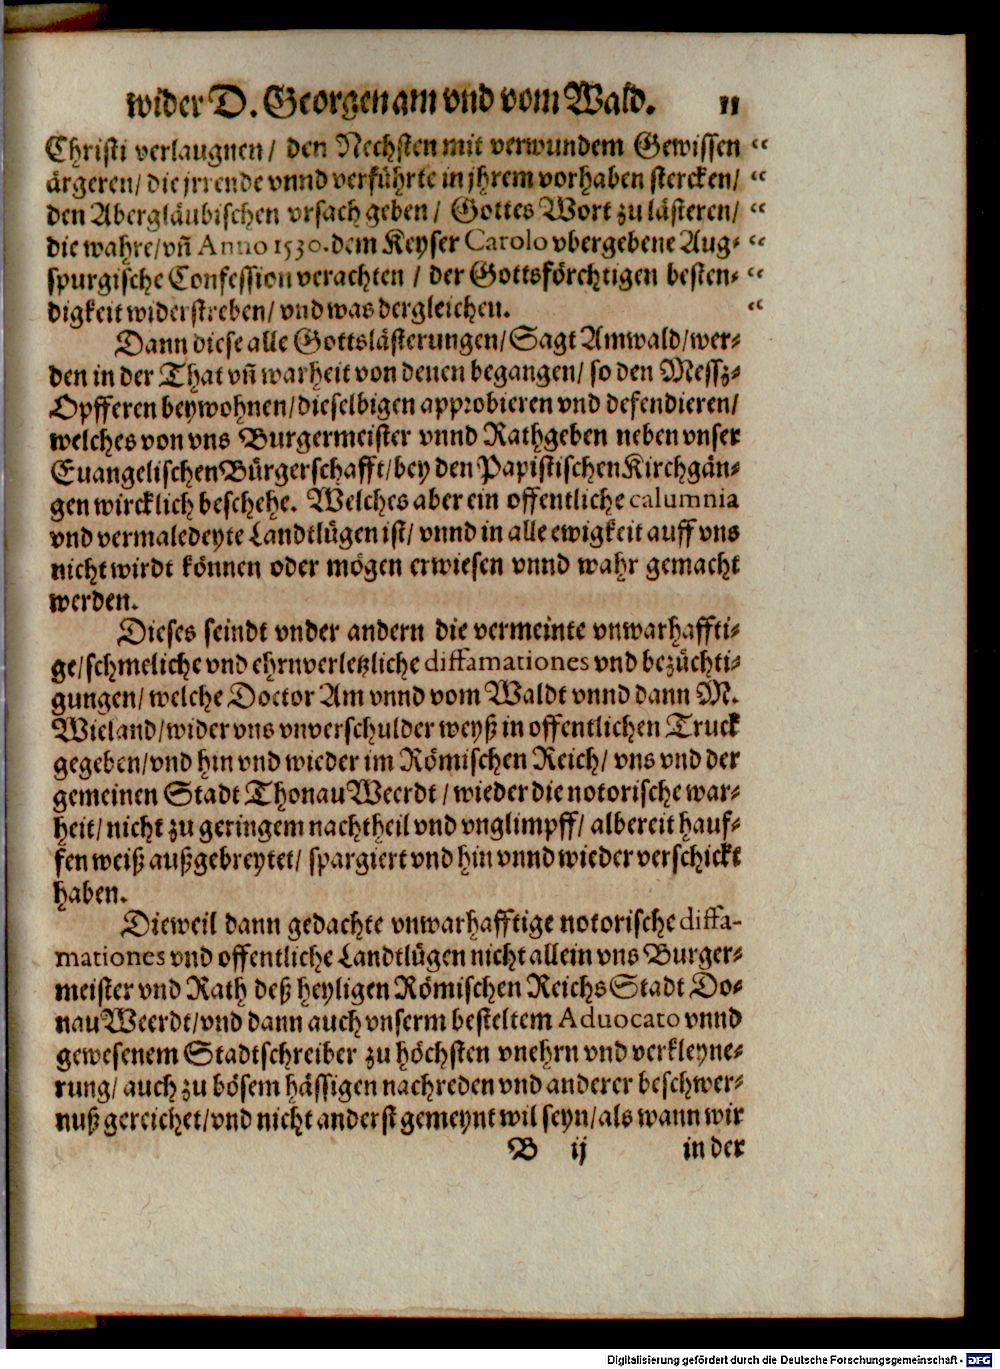 wider D. Georgen am vnd vom Wald. 11
Christi verlaugnen/ den Nechsten mit verwundem Gewissen “
ärgeren/ die jrrende vnnd verführte in jhrem vorhaben stercken/ “
den Abergläubischen vrsach geben/ Gottes Wort zu lästeren/ “
die wahre/ vñ Anno 1530. dem Keyser Carolo vbergebene Aug- “
spurgische Confession verachten / der Gottsförchtigen besten- “
digkeit widerstreben/ vnd was dergleichen. “
Dann diese alle Gottslästerungen/ Sagt Amwald/ wer-
den in der That vñ warheit von denen begangen/ so den Messz-
Opfferen beywohnen/ dieselbigen approbieren vnd defendieren/
welches von vns Burgermeister vnnd Rathgeben neben vnser
Euangelischen Bürgerschafft/ bey den Papistischen Kirchgän-
gen wircklich beschehe. Welches aber ein offentliche calumnia
vnd vermaledeyte Landtlügen ist/ vnnd in alle ewigkeit auff vns
nicht wirdt können oder mögen erwiesen vnnd wahr gemacht
werden.
Dieses seindt vnder andern die vermeinte vnwarhaffti-
ge/ schmeliche vnd ehrnverletzliche diffamationes vnd bezüchti-
gungen/ welche Doctor Am vnnd vom Waldt vnnd dann M.
Wieland/ wider vns vnverschulder weyß in offentlichen Truck
gegeben/ vnd hin vnd wieder im Römischen Reich/ vns vnd der
gemeinen Stadt ThonauWeerdt / wieder die notorische war-
heit/ nicht zu geringem nachtheil vnd vnglimpff/ albereit hauf-
fen weiß außgebreytet/ spargiert vnd hin vnnd wieder verschickt
haben.
Dieweil dann gedachte vnwarhafftige notorische diffa-
mationes vnd offentliche Landtlügen nicht allein vns Burger-
meister vnd Rath deß heyligen Römischen Reichs Stadt Do-
nauWeerdt/ vnd dann auch vnserm besteltem Aduocato vnnd
gewesenem Stadtschreiber zu höchsten vnehrn vnd verkleyne-
rung/ auch zu bösem hässigen nachreden vnd anderer beschwer-
nuß gereichet/ vnd nicht anderst gemeynt wil seyn/ als wann wir
B ij in der
Digitalisierung gefördert durch die Deutsche Forschungsgemeinschaft - DFG